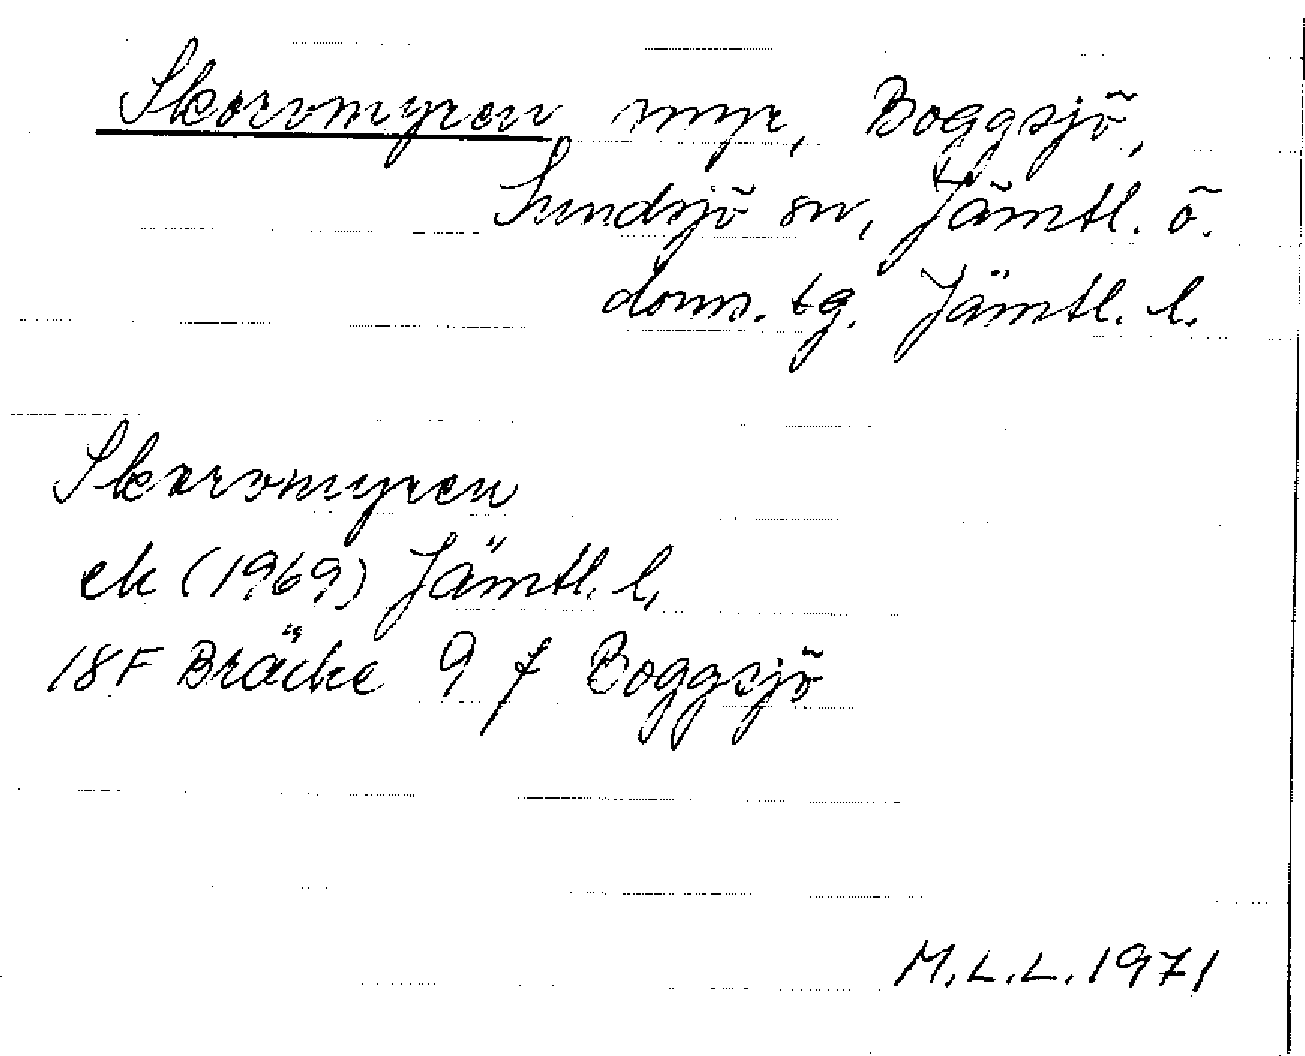 Skorvmyren myr, Boggsjö,
Sundsjö sn, Jämtl. ö.
doms. tg. Jämtl. l.
Skorvmyren
ek (1969) Jämtl. l.
18F Bräcke 9 f Boggsjö
M.L.L. 1971